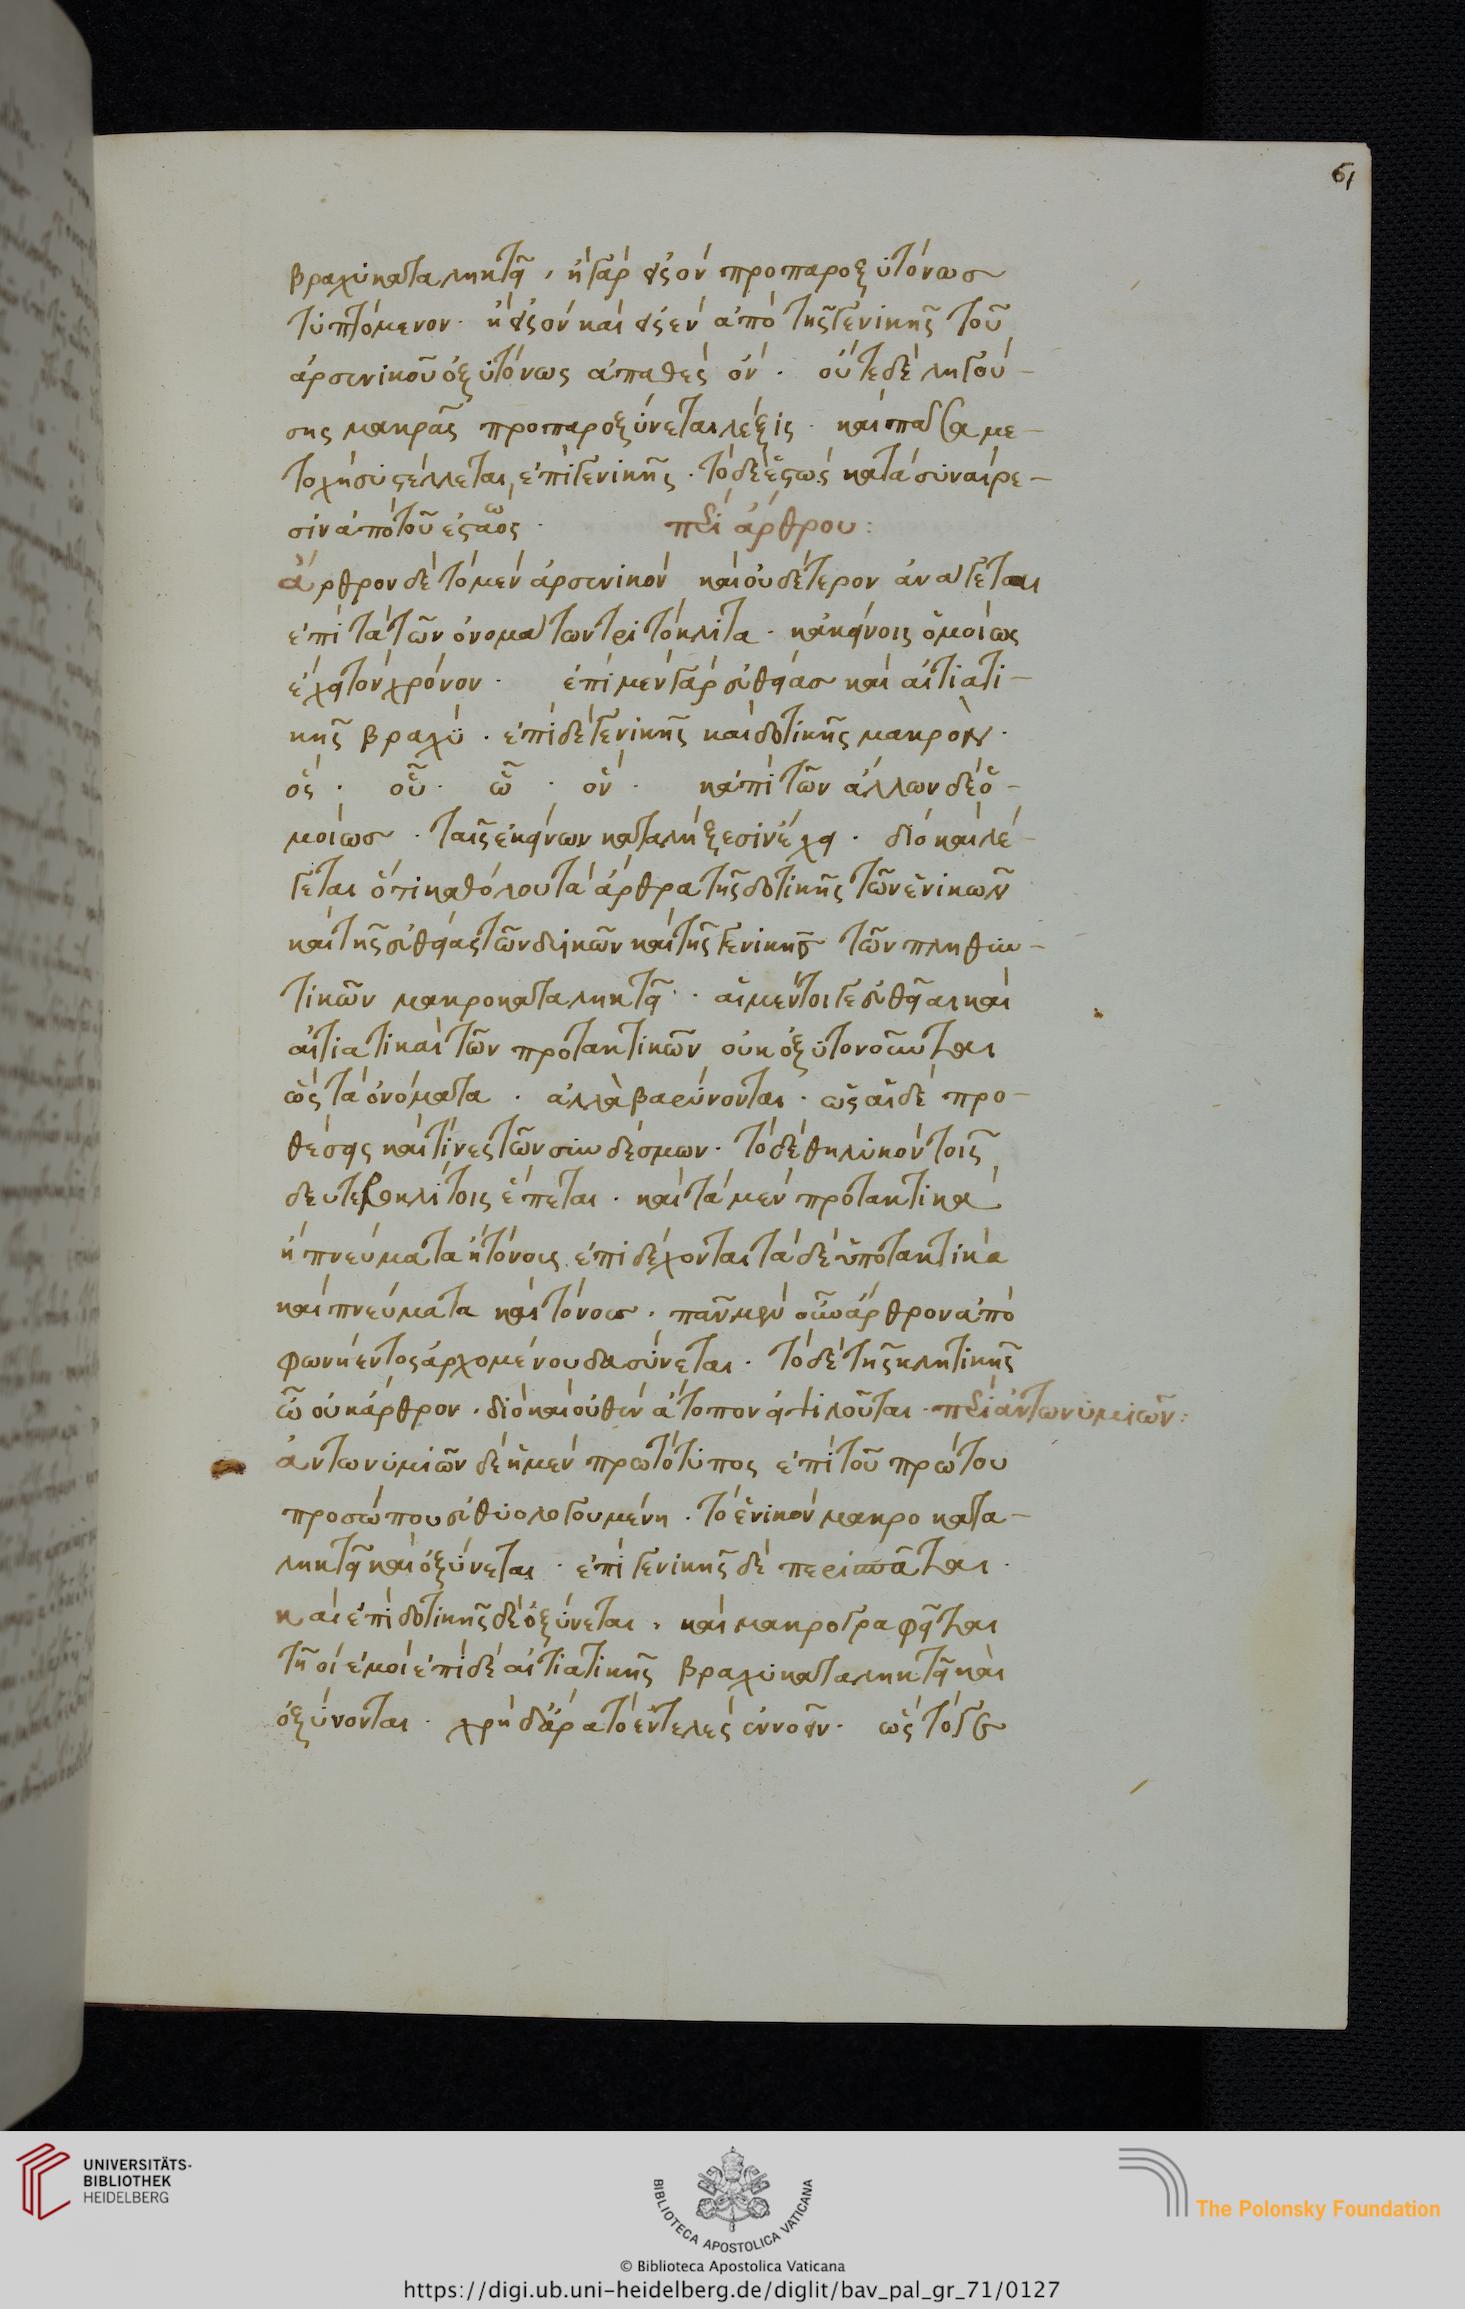 61
βραχυκαταληκτεῖ, ἢ γὰρ εἰστὸν προπαροξυτόνως
τυπτόμενον. ἢ καὶ ἀπὸ τῆς γενικῆς τοῦ
ἀρσενικοῦ ὀξυτόνως ἀπαθὲς ὄν. οὔτε δὲ ληγού-
σης μακρᾶς προπαροξύνεται λέξις. καὶ πᾶσα με-
τοχὴ συστέλλεται, ἐπὶ γενικῆς. τὸ δὲ ἑστὼς κατὰ συναίρε-
σιν ἀπὸ τοῦ ἑσταὼς. περὶ ἄρθρου:
ἄρθρον δὲ τὸ μὲν ἀρσενικὸν καὶ οὐδέτερον ἀνάγεται
ἐπὶ τὰ τῶν ὀνομάτων τριτόκλιτα. κἀκείνοις ὁμοίως
ἔχει τὸν χρόνον. ἐπὶ μὲν γὰρ εὐθείας καὶ αἰτιατι-
κῆς βραχύ. ἐπὶ δὲ γενικῆς καὶ δοτικῆς μακρὸν.
ὅς. οὗ. ᾧ. ὅν. κἀπὶ τῶν ἄλλων δὲ ὁ-
μοίως. ταῖς ἐκείνων καταλήξεσιν ἔχει. διὸ καὶ λέ-
γεται ὅτι καθόλου τὰ ἄρθρα τῆς δοτικῆς τῶν ἑνικῶν
καὶ τῆς εὐθείας τῶν δυικῶν καὶ τῆς γενικῆς τῶν πληθυν-
τικῶν μακροκαταληκτεῖ. αἱ μέντοι γε εὐθεῖαι καὶ
αἰτιατικαὶ τῶν προτακτικῶν οὐκ ὀξυτονοῦνται
ὡς τὰ ὀνόματα. ἀλλὰ βαρύνονται. ὡς αἱ δὲ προ-
θέσεις καὶ τινὲς τῶν συνδέσμων. τὸ δὲ θηλυκὸν τοῖς
δευτεροκλίτοις ἕπεται. καὶ τὰ μὲν προτακτικὰ
ἢ πνεύματα ἢ τόνους ἐπιδέχονται τὰ δὲ ὑποτακτικὰ
καὶ πνεύματα καὶ τόνους. πᾶν μὲν οὖν ἄρθρον ἀπὸ
φωνήεντος ἀρχομένου δασύνεται. τὸ δὲ τῆς κλητικῆς
ὦ οὐκ ἄρθρον. διὸ καὶ οὐθὲν ἄτοπον εἰ ψιλοῦται. περὶ ἀντωνυμιῶν:
ἀντωνυμιῶν δὲ ἡ μὲν πρωτότυπος ἐπὶ τοῦ πρώτου
προσώπου εὐθυολογουμένη. τὸ ἑνικὸν μακροκατα-
ληκτεῖ καὶ ὀξύνεται. ἐπὶ γενικῆς δὲ περισπᾶται.
καὶ ἐπὶ δοτικῆς δὲ ὀξύνεται. καὶ μακρογραφεῖται
τῇ οι ἐμοὶ ἐπὶ δὲ αἰτιατικῆς βραχυκαταληκτεῖ καὶ
ὀξύνονται. χρὴ δ' ἄρα τὸ ἐντελὲς ἐννοεῖν. ὡς τὸ
UNIVERSITÄTS-
BIBLIOTHEK
HEIDELBERG
BIBLIOTECA APOSTOLICA VATICANA
The Polonsky Foundation
© Biblioteca Apostolica Vaticana
https://digi.ub.uni-heidelberg.de/diglit/bav_pal_gr_71/0127